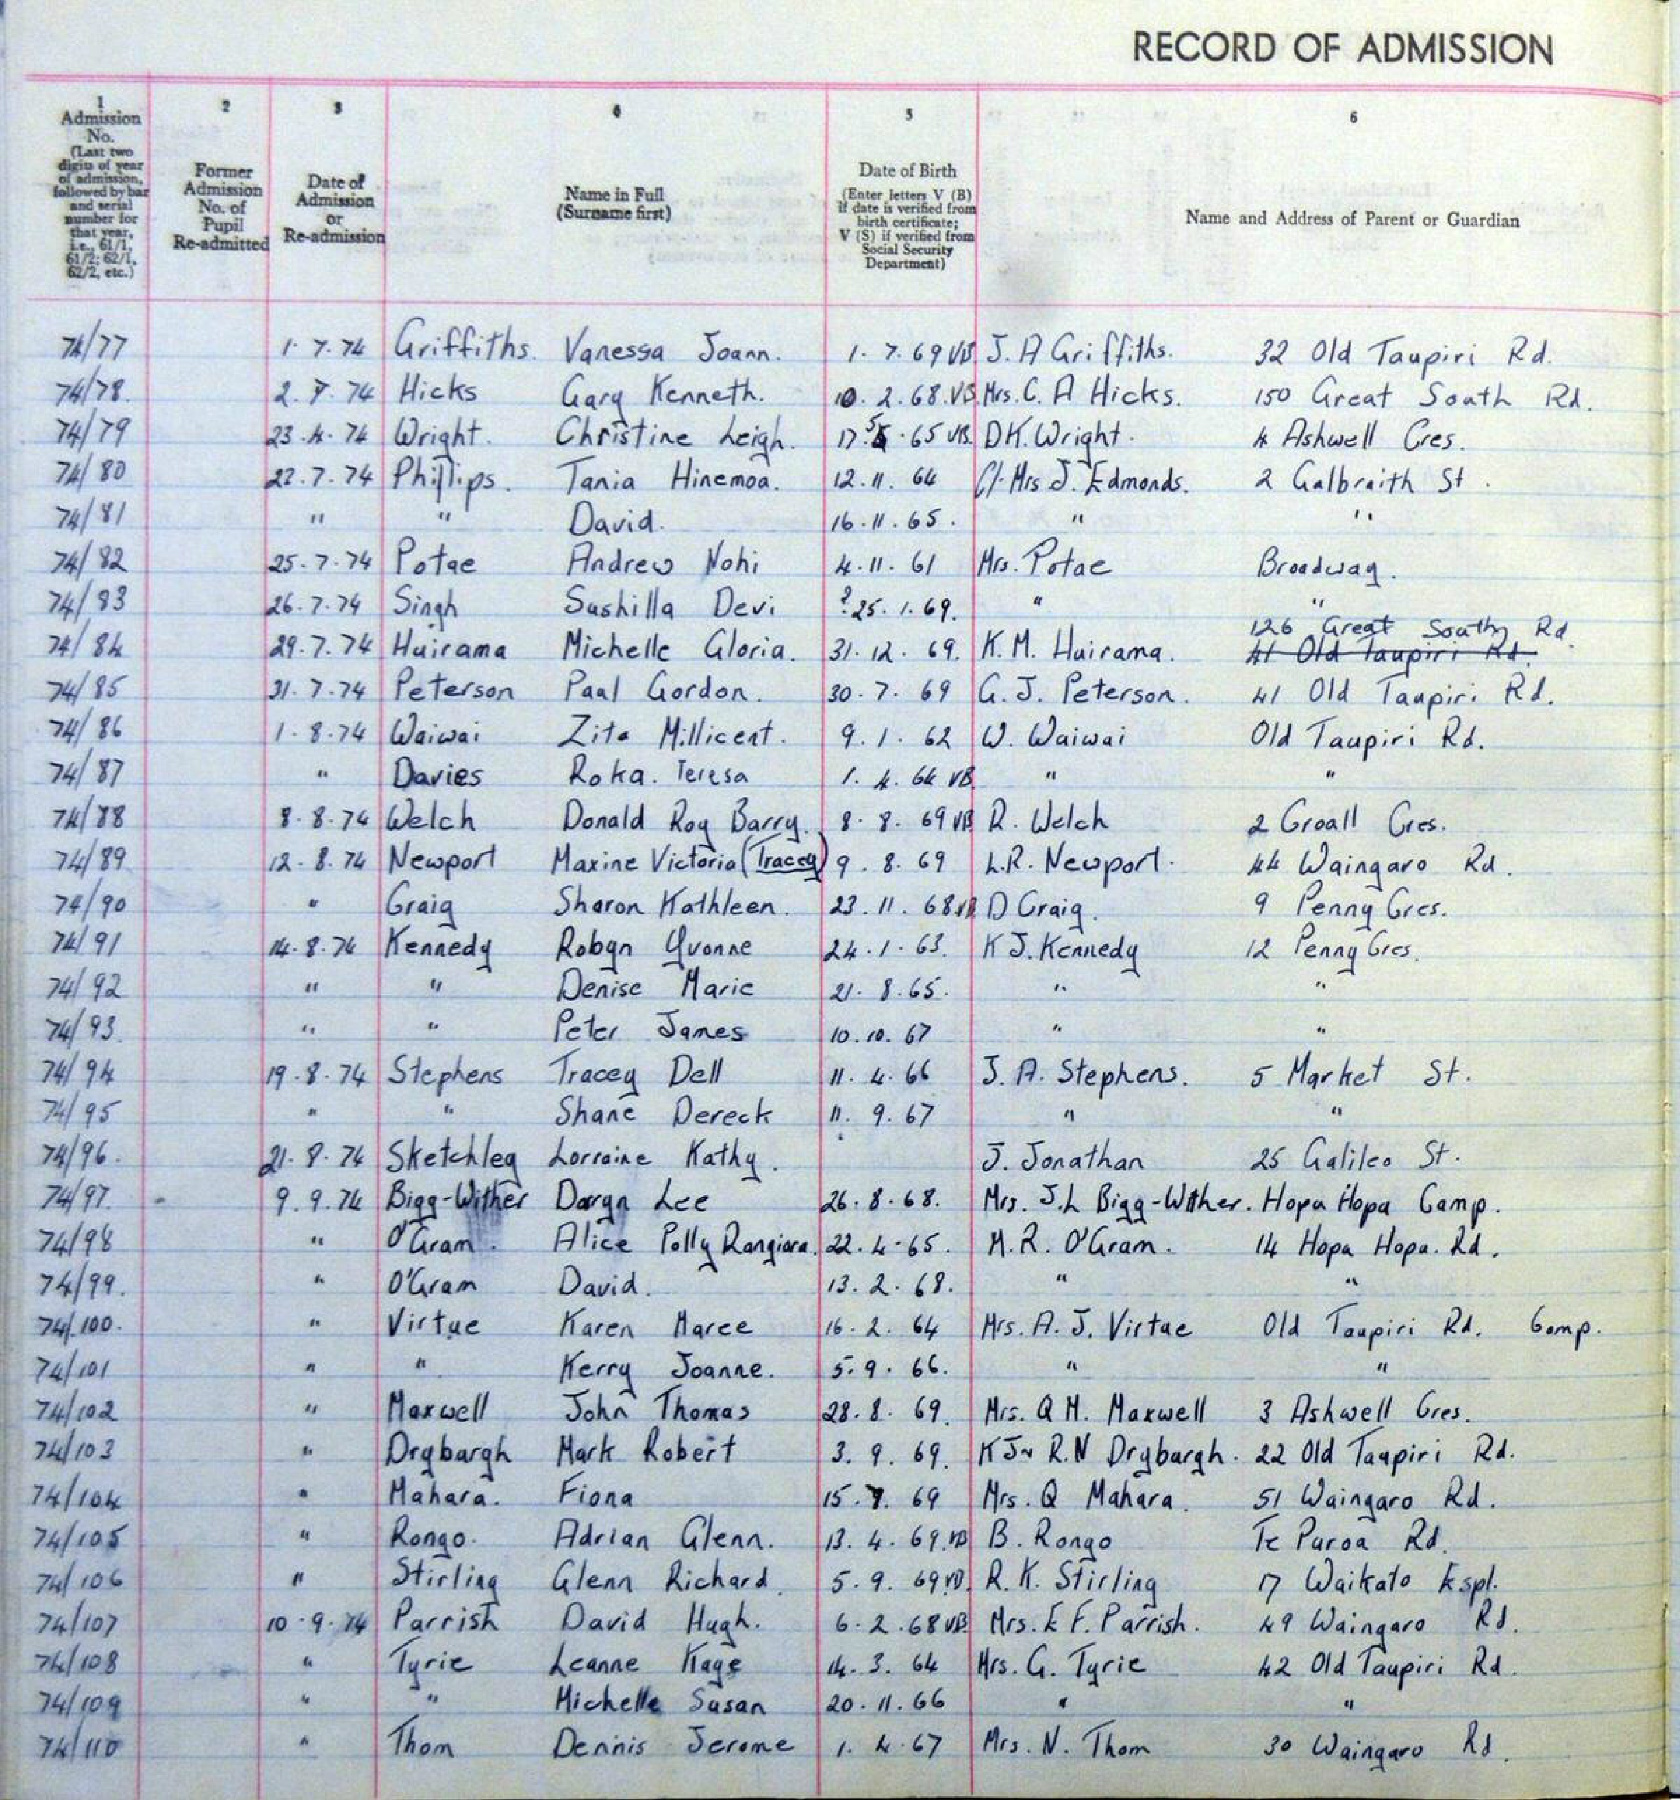 RECORD OF ADMISSION
1 2 3 4 5 6
Admission No. (Last two digits of year of admission, followed by bar and serial number for that year, i.e., 61/1, 61/2; 62/1, 62/2, etc.)
Former Admission No. of Pupil Re-admitted
Date of Admission or Re-admission
Name in Full (Surname first)
Date of Birth (Enter letters V (B) if date is verified from birth certificate; V (S) if verified from Social Security Department)
Name and Address of Parent or Guardian
74/77 1.7.74 Griffiths. Vanessa Joann. 1.7.69 VB J. A Griffiths. 32 Old Taupiri Rd.
74/78. 2.7.74 Hicks Gary Kenneth. 10.2.68.VB. Mrs. C. A Hicks. 150 Great South Rd.
74/79 23.4.74 Wright. Christine Leigh. 17.5.65 VB. DK. Wright. 4 Ashwell Cres.
74/80 22.7.74 Phillips. Tania Hinemoa. 12.11.64 C/- Mrs J. Edmonds. 2 Galbraith St.
74/81 " " David. 16.11.65. " "
74/82 25.7.74 Potae Andrew Nohi 4.11.61 Mrs. Potae Broadway.
74/83 26.7.74 Singh Sushilla Devi ?25.1.69. " "
126 Great South Rd.
74/84 29.7.74 Huirama Michelle Gloria. 31.12.69. K. M. Huirama. 41 Old Taupiri Rd.
74/85 31.7.74 Peterson Paul Gordon. 30.7.69 G. J. Peterson. 41 Old Taupiri Rd.
74/86 1.8.74 Waiwai Zita Millicent. 9.1.62 W. Waiwai Old Taupiri Rd.
74/87 " Davies Roka. Teresa 1.4.64 VB " "
74/88 8.8.74 Welch Donald Roy Barry. 8.8.69 VB R. Welch 2 Croall Cres.
74/89 12.8.74 Newport Maxine Victoria (Tracey) 9.8.69 L.R. Newport. 44 Waingaro Rd.
74/90 " Craig Sharon Kathleen. 23.11.68 VB D Craig. 9 Penny Cres.
74/91 14.8.74 Kennedy Robyn Yvonne 24.1.63. K J. Kennedy 12 Penny Cres.
74/92 " " Denise Marie 21.8.65. " "
74/93. " " Peter James 10.10.67 " "
74/94 19.8.74 Stephens Tracey Dell 11.4.66 J. A. Stephens. 5 Market St.
74/95 " " Shane Dereck 11.9.67 " "
74/96. 21.8.74 Sketchley Lorraine Kathy. J. Jonathan 25 Galileo St.
74/97. 9.9.74 Bigg-Wither Daryn Lee 26.8.68. Mrs. J.L Bigg-Wither. Hopa Hopa Camp.
74/98 " O'Gram. Alice Polly Rangiora. 22.4-65. M. R. O'Gram. 14 Hopa Hopa. Rd.
74/99. " O'Gram David. 13.2.68. " "
74/100. " Virtue Karen Maree 16.2.64 Mrs. A. J. Virtue Old Taupiri Rd. Comp.
74/101 " " Kerry Joanne. 5.9.66. " "
74/102 " Maxwell John Thomas 28.8.69. Mrs. Q M. Maxwell 3 Ashwell Cres.
74/103 " Dryburgh Mark Robert 3.9.69. K J & R.N Dryburgh. 22 Old Taupiri Rd.
74/104 " Mahara. Fiona 15.9.69 Mrs. Q Mahara. 51 Waingaro Rd.
74/105 " Rongo. Adrian Glenn. 13.4.69.VB B. Rongo Te Puroa Rd.
74/106 " Stirling Glenn Richard. 5.9.69 VB. R. K. Stirling 17 Waikato Espl.
74/107 10.9.74 Parrish David Hugh. 6.2.68 VB Mrs. E F. Parrish. 49 Waingaro Rd.
74/108 " Tyrie Leanne Kaye 14.3.64 Mrs. G. Tyrie 42 Old Taupiri Rd.
74/109 " " Michelle Susan 20.11.66 " "
74/110 " Thom Dennis Jerome 1.4.67 Mrs. N. Thom 30 Waingaro Rd.